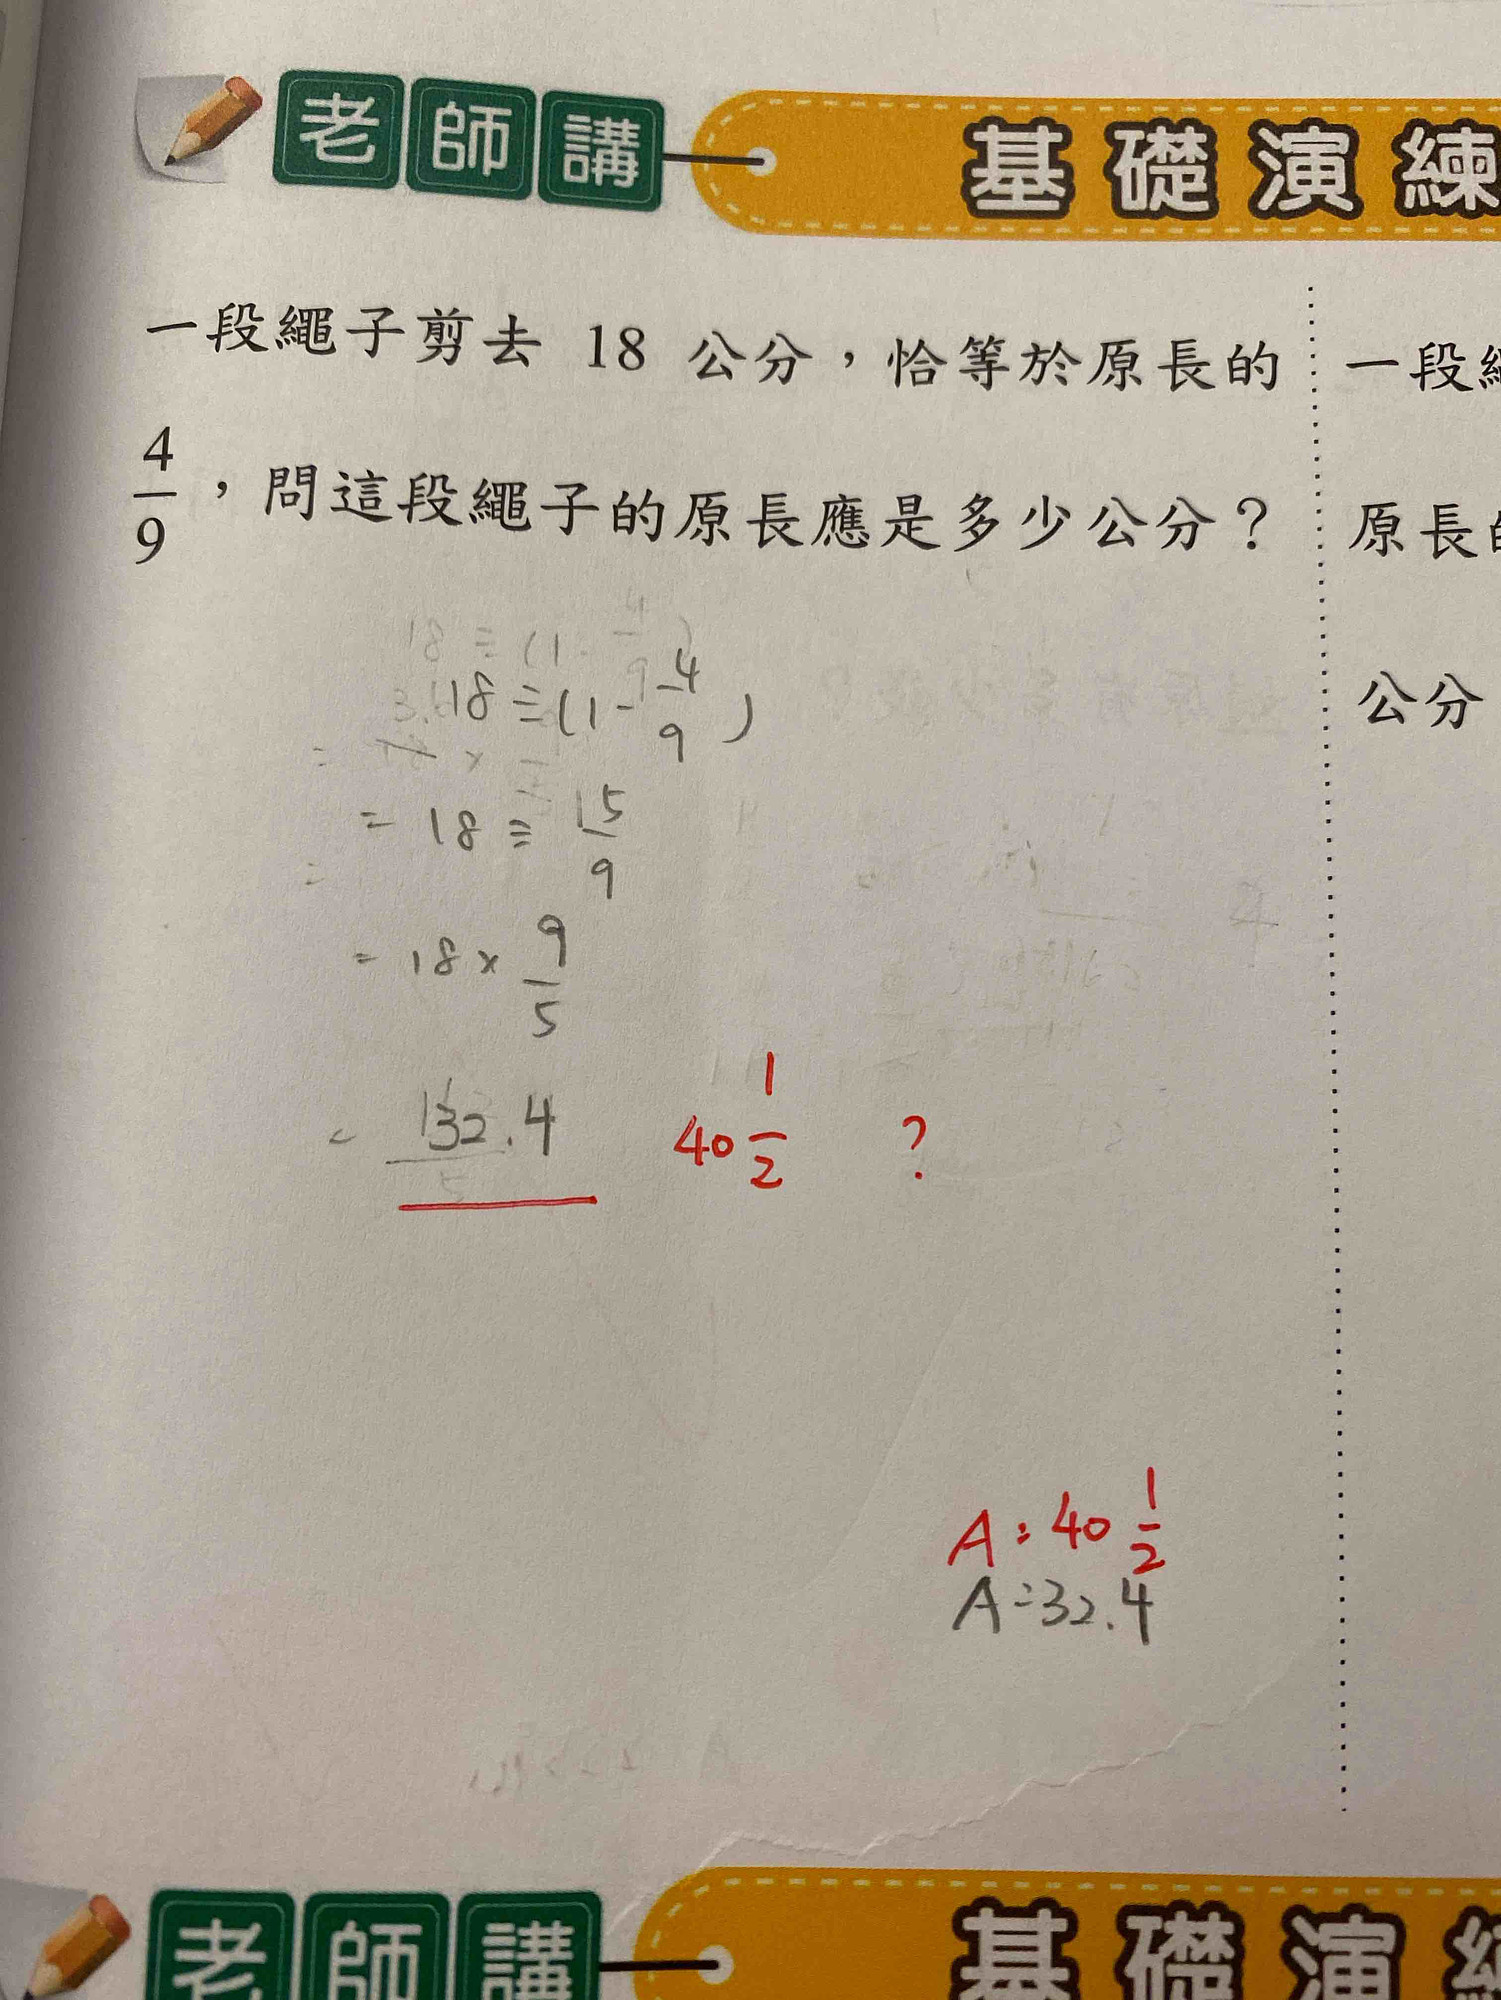 老師講 基礎演練
一段繩子剪去 18 公分，恰等於原長的
4/9，問這段繩子的原長應是多少公分？
18÷(1-4/9)
= 18÷5/9
= 18×9/5
= 32.4 40 1/2 ?
A:40 1/2
A:32.4
一段
原長
公分
老師講 基礎演